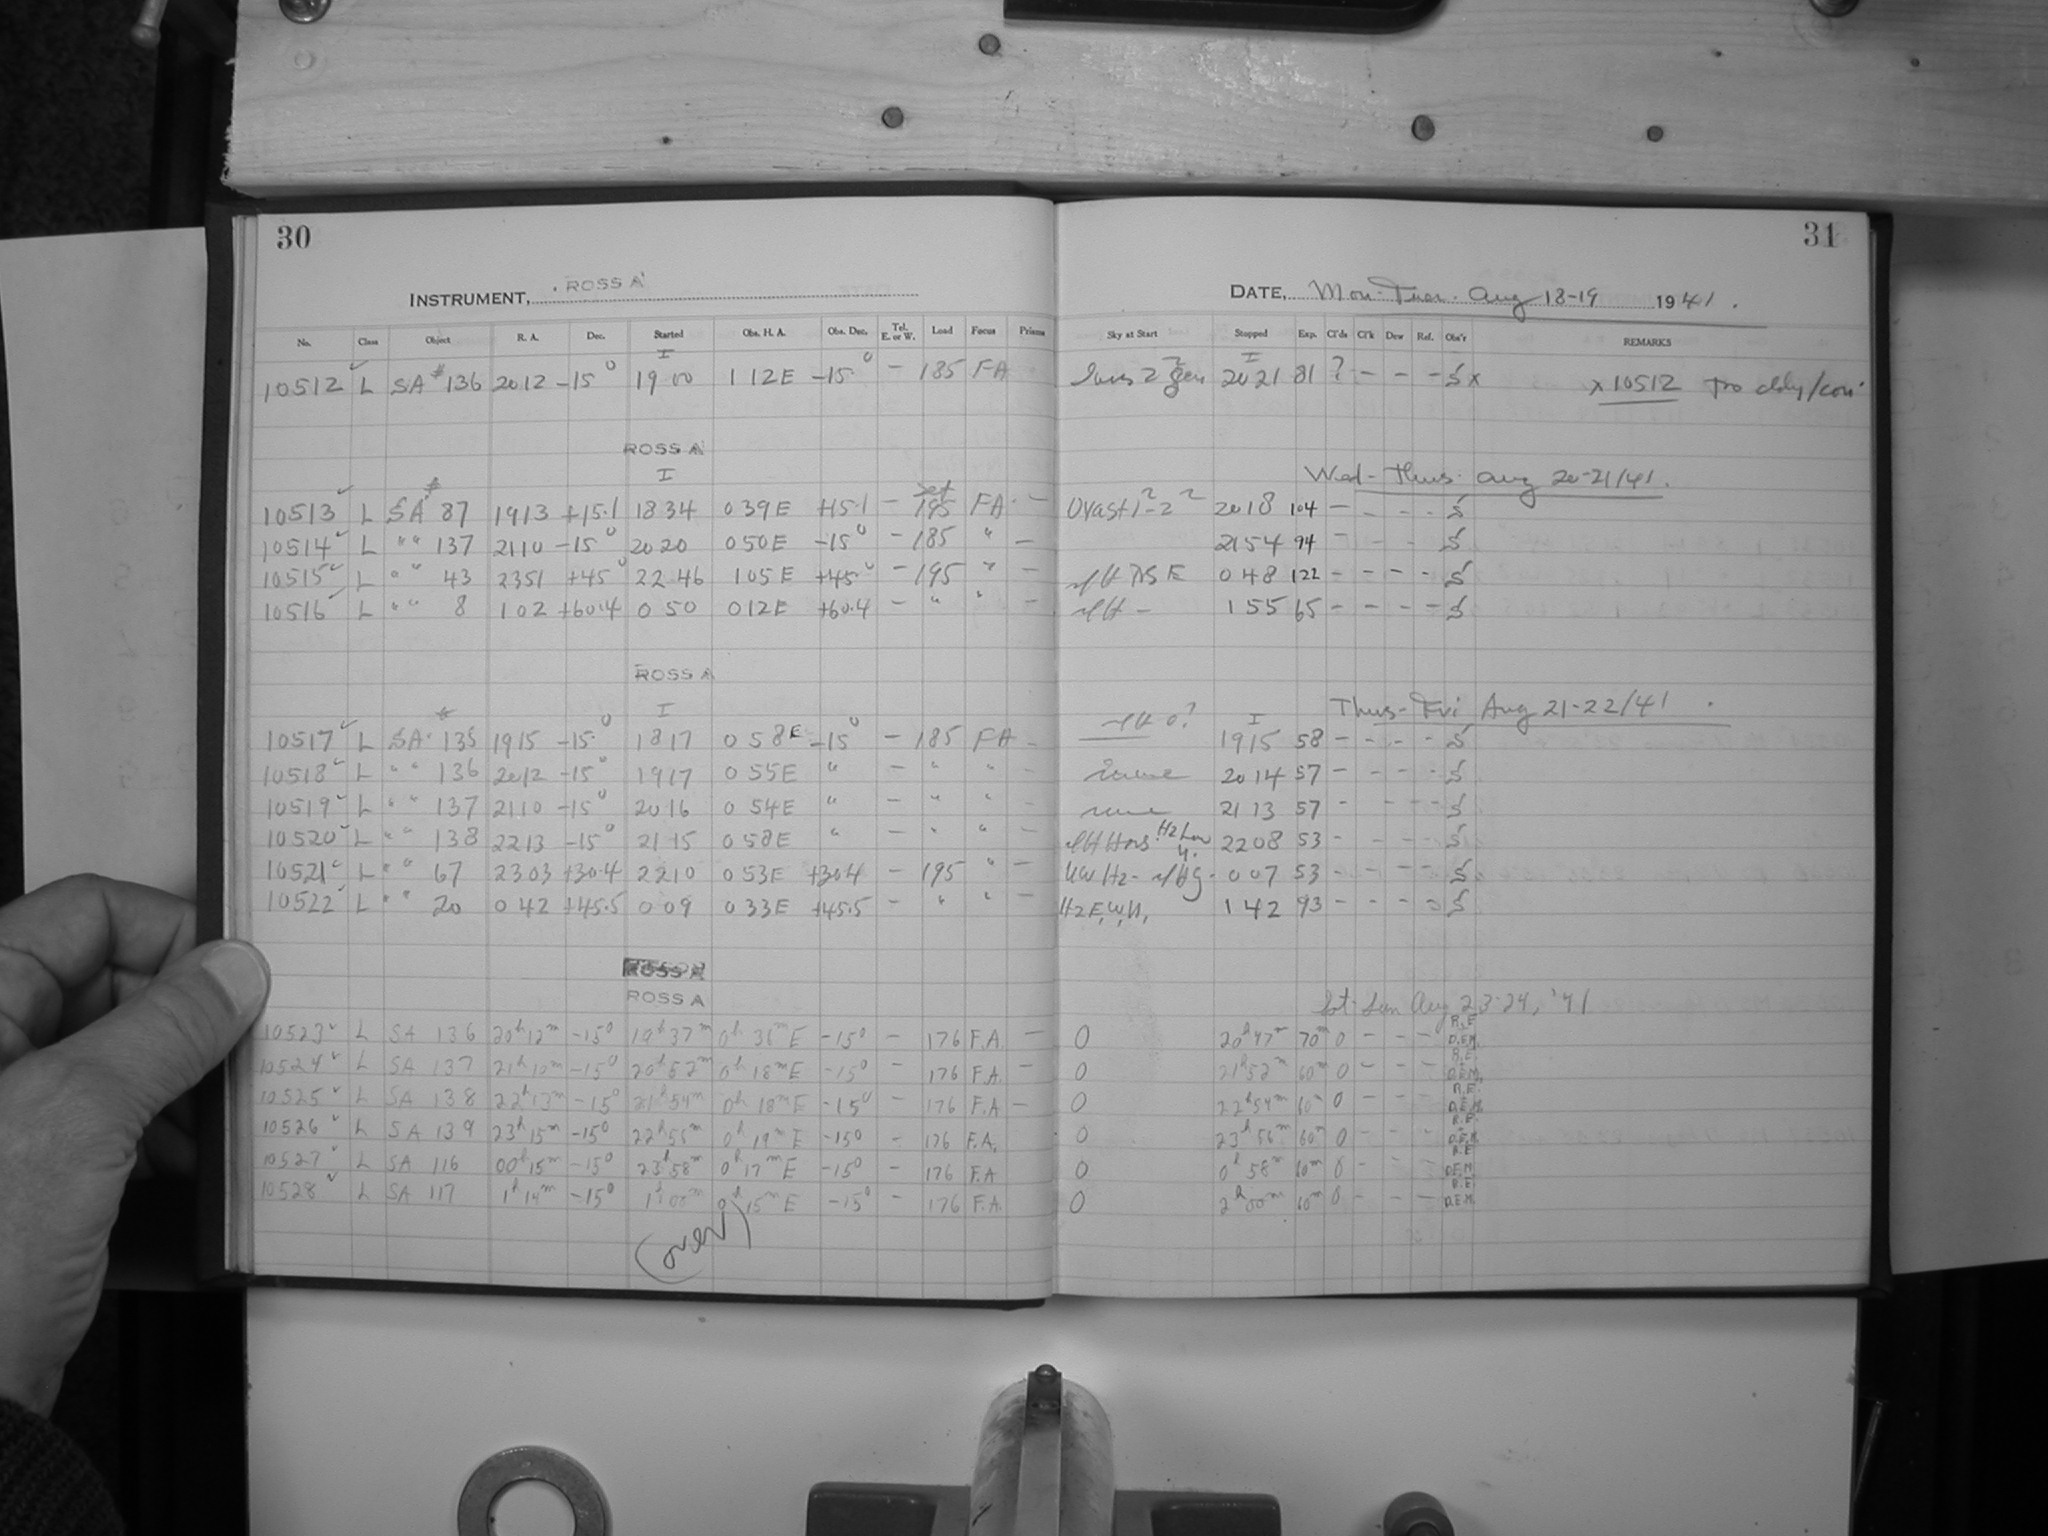 30
31
INSTRUMENT, ROSS A
DATE, Mon-Tues. Aug 18-19 1941.
No. Class Object R. A. Dec. Started Obs. H. A. Obs. Dec. Tel. E. or W. Load Focus Prisms Sky at Start Stopped Exp. Cl'ds Cl'k Dew Ref. Obs'r REMARKS
I I
10512 ✓ L SA # 136 2012 -15° 1900 112E -15° - 185 FA 2021 81 ? - - - S x x 10512
ROSS A
I
Wed-Thus. Aug 20-21/41.
10513 ✓ L SA # 87 1913 +15.1 1834 039E +15.1 - 195 FA - 2018 104 - - - - S
10514 ✓ L " " 137 2110 -15° 2020 050E -15° - 185 " - 2154 94 - - - - S
10515 ✓ L " " 43 2351 +45° 2246 105E +45° - 195 " - 048 122 - - - - S
10516 ✓ L " " 8 102 +60.4 050 012E +60.4 - " " - 155 65 - - - - S
ROSS A
I
Thus-Fri Aug 21-22/41.
I
10517 ✓ L SA # 135 1915 -15° 1817 058E -15° - 185 FA - 1915 58 - - - - S
10518 ✓ L " " 136 2012 -15° 1917 055E " - " " - 2014 57 - - - - S
10519 ✓ L " " 137 2110 -15° 2016 054E " - " " - 2113 57 - - - - S
10520 ✓ L " " 138 2213 -15° 2115 058E " - " " - 2208 53 - - - - S
10521 ✓ L " " 67 2303 +30.4 2210 053E +30.4 - 195 " - 007 53 - - - - S
10522 ✓ L " " 20 042 +45.5 009 033E +45.5 - " " - Hz E, W, N, 142 93 - - - - S
ROSS A
ROSS A
Sat-Sun Aug 23-24, '41
10523 ✓ L SA 136 20h 12m -15° 19h 37m 0h 36m E -15° - 176 F.A. - 0 20h 47m 70m 0 - - - R.E. D.E.M.
10524 ✓ L SA 137 21h 10m -15° 20h 52m 0h 18m E -15° - 176 F.A. - 0 21h 52m 60m 0 - - - R.E. D.E.M.
10525 ✓ L SA 138 22h 13m -15° 21h 54m 0h 18m E -15° - 176 F.A - 0 22h 54m 60m 0 - - - R.E. D.E.M.
10526 ✓ L SA 139 23h 15m -15° 22h 55m 0h 19m E -15° - 176 F.A. 0 23h 56m 60m 0 - - - R.E. D.E.M.
10527 ✓ L SA 116 00h 15m -15° 23h 58m 0h 17m E -15° - 176 F.A 0 0h 58m 60m 0 - - - R.E. D.E.M.
10528 ✓ L SA 117 1h 14m -15° 1h 00m 0h 15m E -15° - 176 F.A. 0 2h 00m 60m 0 - - - R.E. D.E.M.
(over)